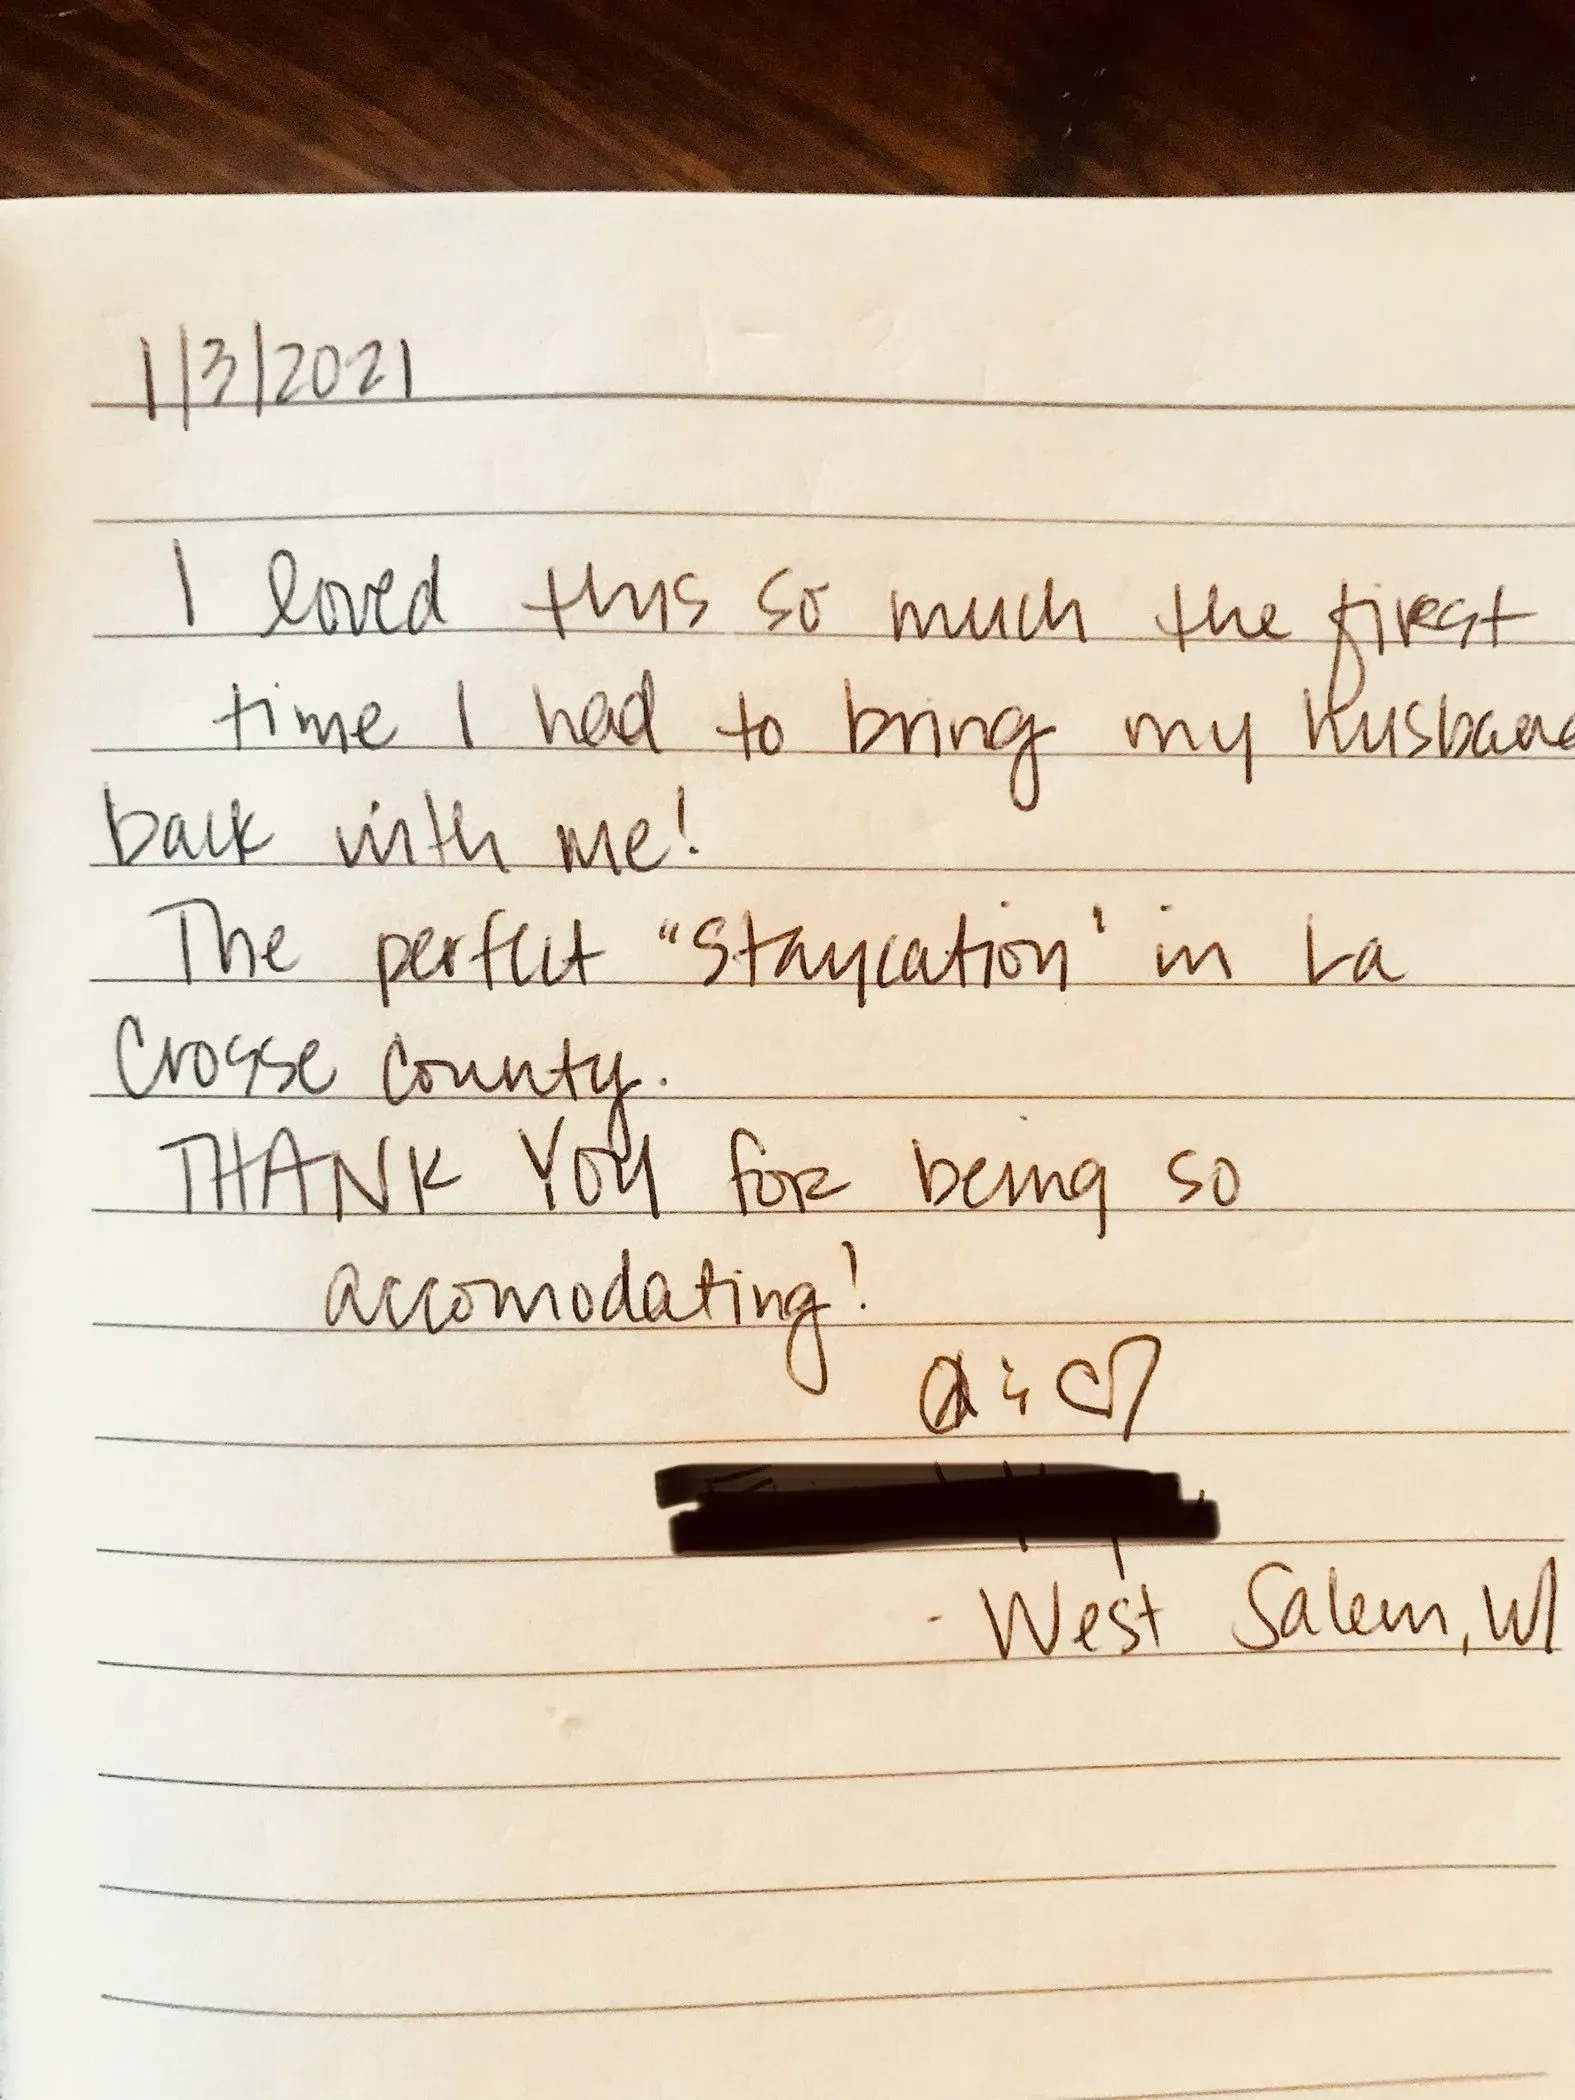 1/3/2021
I loved this so much the first
time I had to bring my husband
back with me!
The perfect "staycation" in La
Crosse County.
THANK YOU for being so
accomodating!
- West Salem, WI